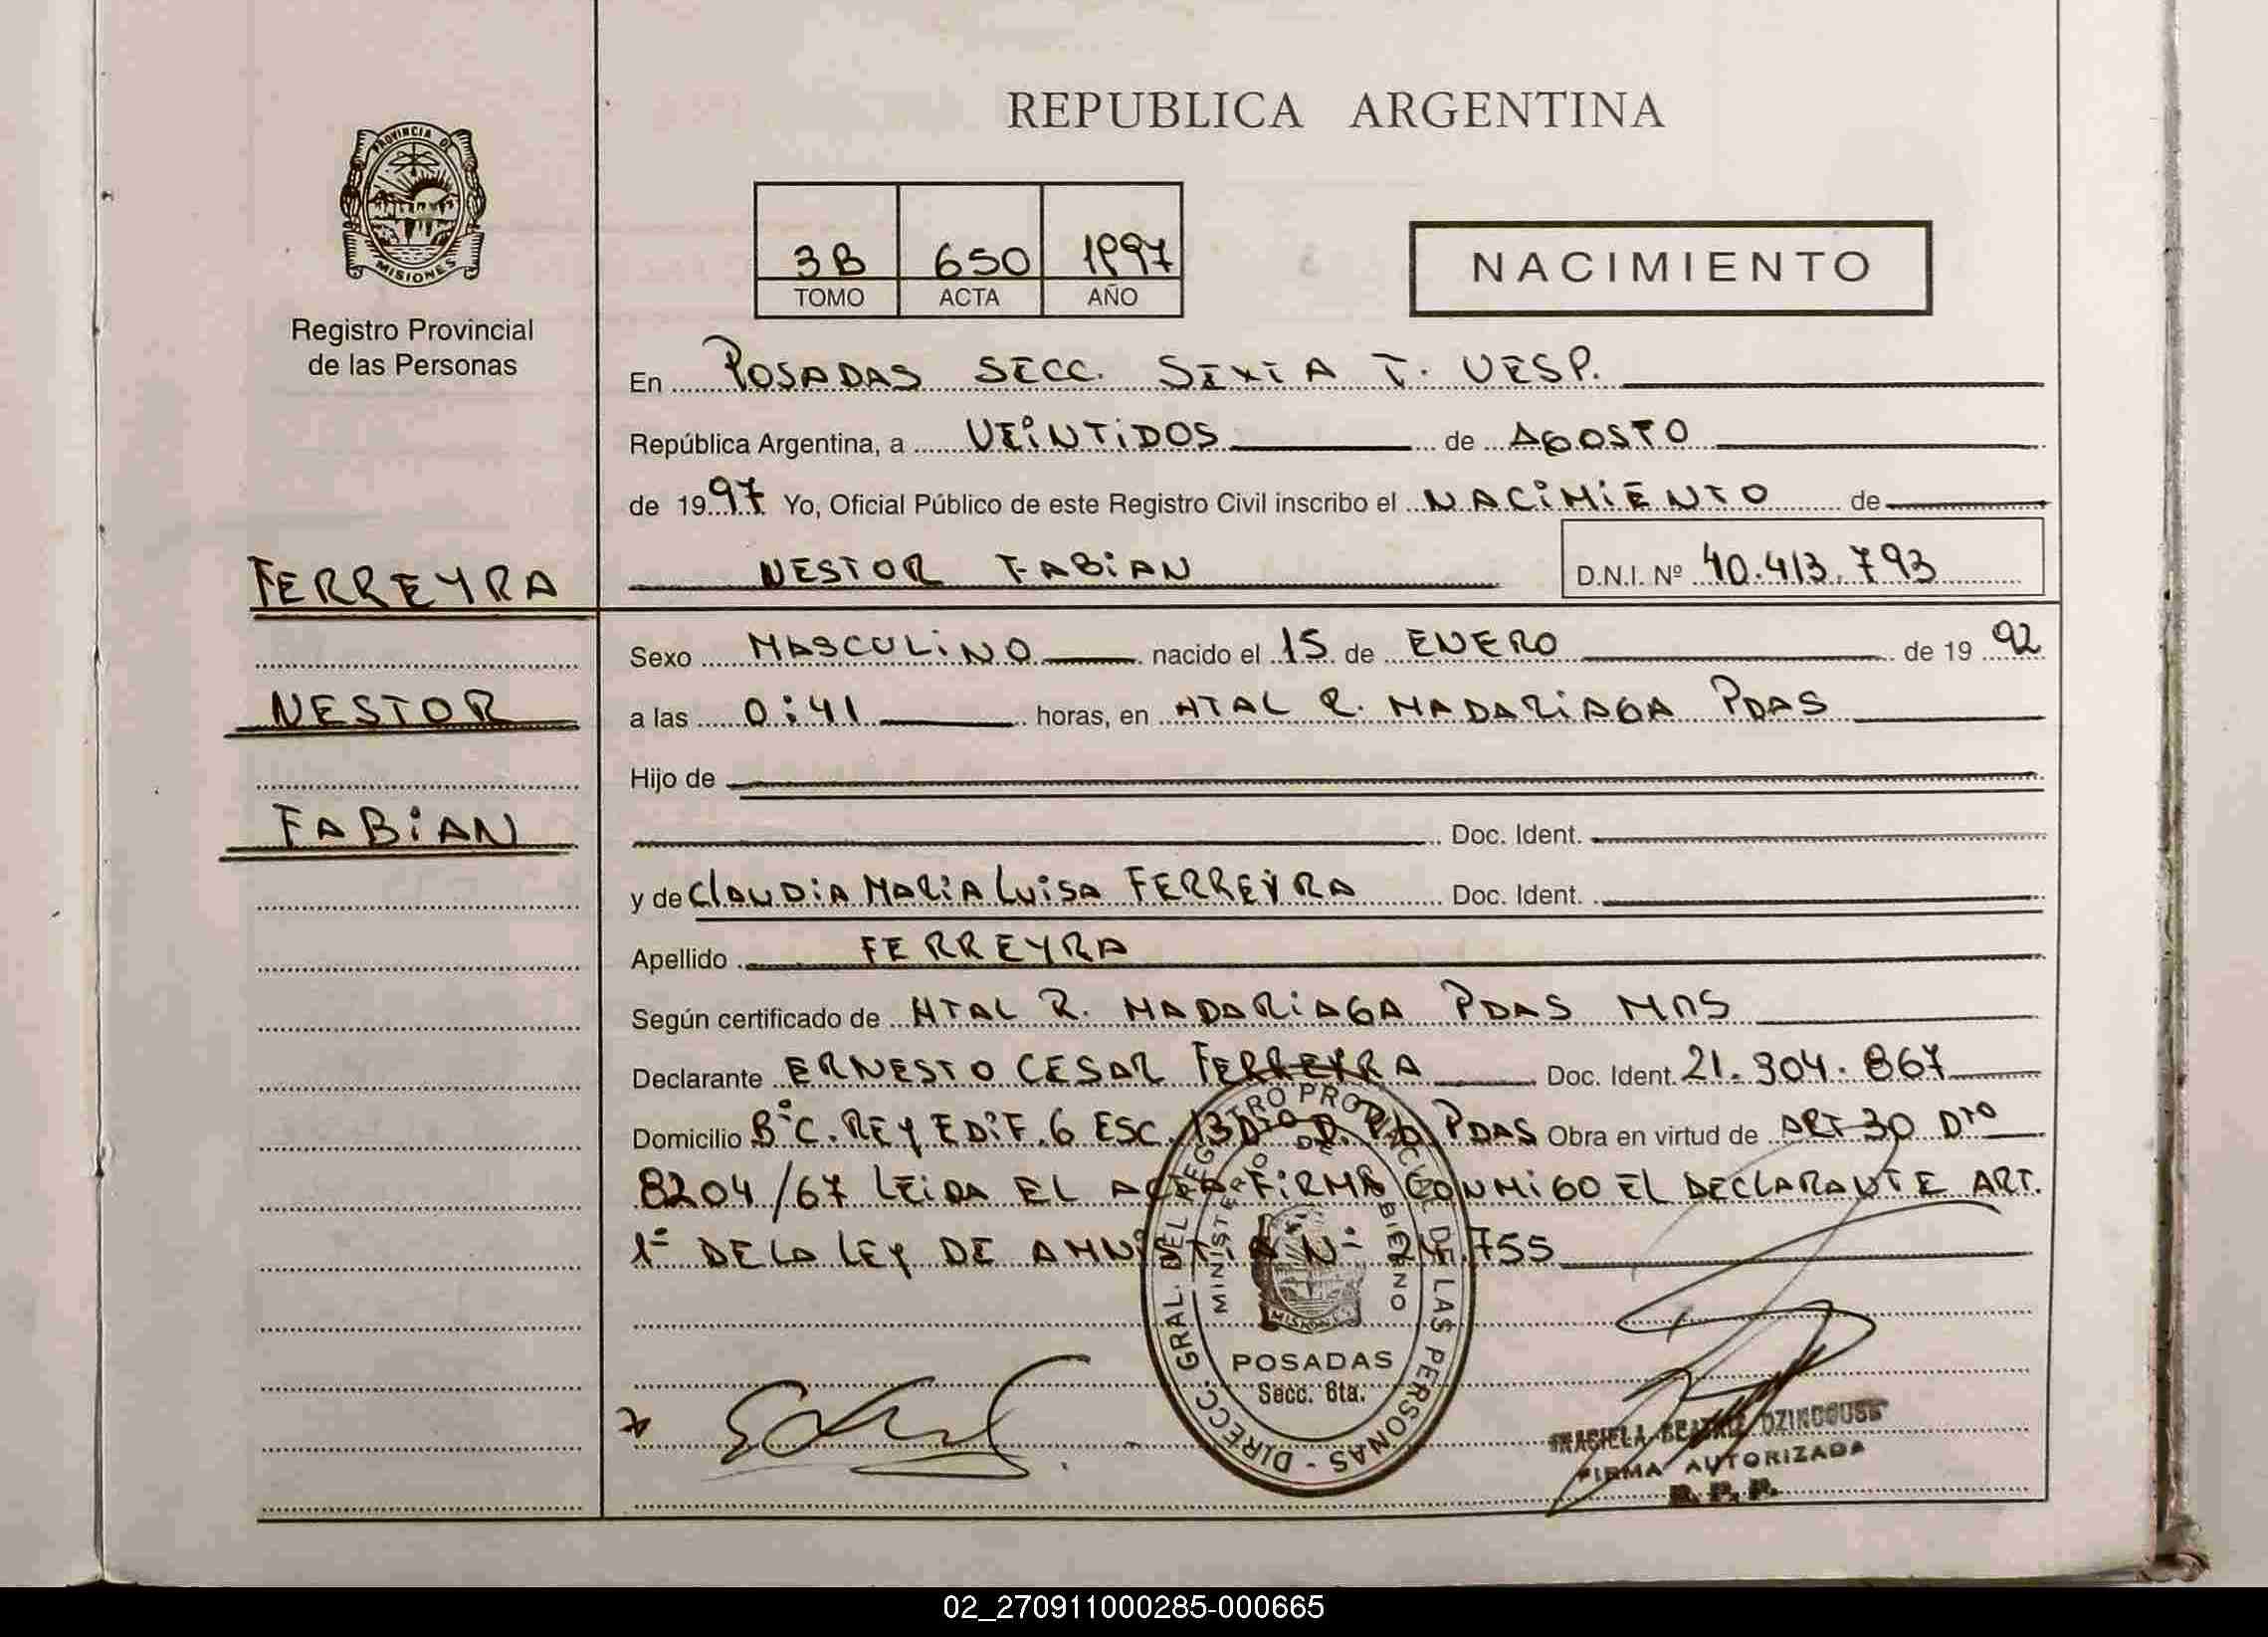 REPUBLICA ARGENTINA
PROVINCIA DE
MISIONES
Registro Provincial
de las Personas
3B 650 1997
TOMO ACTA AÑO
NACIMIENTO
En POSADAS SECC. SEXTA T. VESP.
República Argentina, a VEINTIDOS de AGOSTO
de 1997 Yo, Oficial Público de este Registro Civil inscribo el NACIMIENTO de
NESTOR FABIAN D.N.I. Nº 40.413.793
FERREYRA
NESTOR
FABIAN
Sexo MASCULINO nacido el 15 de ENERO de 19 92
a las 0:41 horas, en HTAL R. MADARIAGA PDAS
Hijo de
Doc. Ident.
y de CLAUDIA MARIA LUISA FERREYRA Doc. Ident.
Apellido FERREYRA
Según certificado de HTAL R. MADARIAGA PDAS MNS
Declarante ERNESTO CESAR FERREYRA Doc. Ident. 21.304.867
Domicilio Bº C. REY EDIF. 6 ESC. 13 PDAS Obra en virtud de ART 30 Dto
8204/67 LEIDA EL ACTA FIRMA CONMIGO EL DECLARANTE ART.
1º DE LA LEY DE AMNISTIA Nº 24.755
DIRECC. GRAL. DEL REGISTRO PROVINCIAL DE LAS PERSONAS
MINISTERIO DE GOBIERNO
MISIONES
POSADAS
Secc. 6ta.
GRACIELA BEATRIZ
FIRMA AUTORIZADA
R. P. P.
02_270911000285-000665